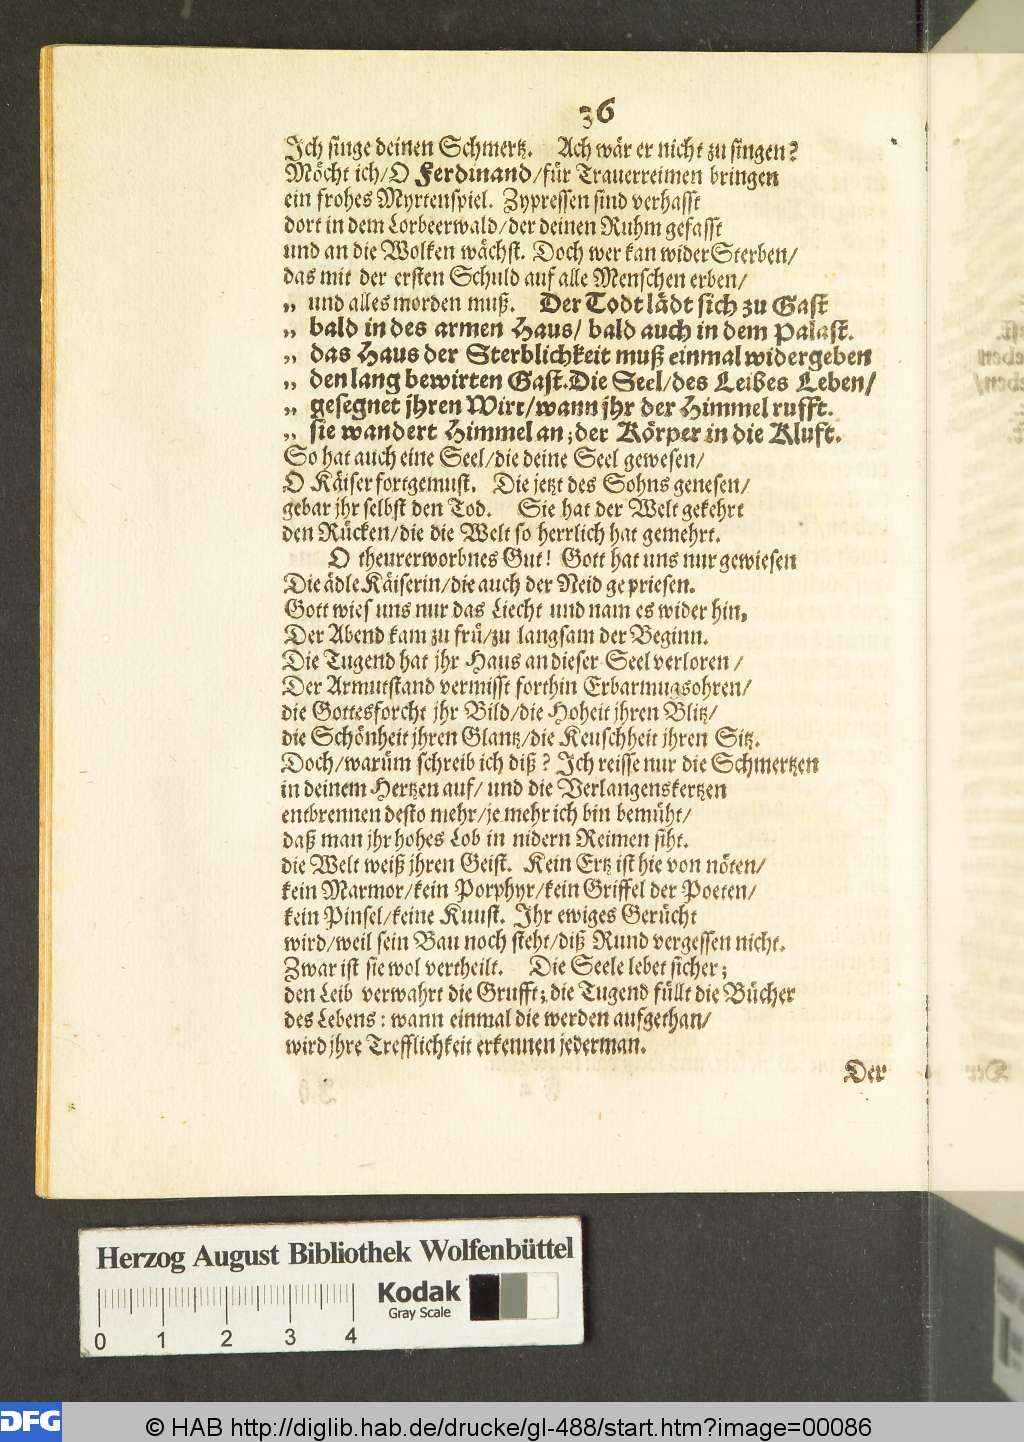 36
Ich singe deinen Schmertz. Ach wär er nicht zu singen?
Möcht ich/O Ferdinand/für Trauerreimen bringen
ein frohes Myrtenspiel. Zypressen sind verhasst
dort in dem Lorbeerwald/der deinen Ruhm gefasst
und an die Wolken wächst. Doch wer kan wider Sterben/
das mit der ersten Schuld auf alle Menschen erben/
„ und alles morden muß. Der Todt lädt sich zu Gast
„ bald in des armen Haus/ bald auch in dem Palast.
„ das Haus der Sterblichkeit muß einmal widergeben
„ den lang bewirten Gast. Die Seel/des Leibes Leben/
„ gesegnet jhren Wirt/wann jhr der Himmel rufft.
„ sie wandert Himmel an; der Körper in die Kluft.
So hat auch eine Seel/die deine Seel gewesen/
O Käiser fortgemust. Die jetzt des Sohns genesen/
gebar jhr selbst den Tod. Sie hat der Welt gekehrt
den Rücken/die die Welt so herrlich hat gemehrt.
O theurerworbnes Gut! Gott hat uns nur gewiesen
Die ädle Käiserin/die auch der Neid gepriesen.
Gott wies uns nur das Liecht und nam es wider hin,
Der Abend kam zu frü/zu langsam der Beginn.
Die Tugend hat jhr Haus an dieser Seel verloren /
Der Armutstand vermisst forthin Erbarmugsohren/
die Gottesforcht jhr Bild/die Hoheit jhren Blitz/
die Schönheit jhren Glantz/die Keuschheit jhren Sitz.
Doch/warüm schreib ich diß? Ich reisse nur die Schmertzen
in deinem Hertzen auf/ und die Verlangenskertzen
entbrennen desto mehr/je mehr ich bin bemüht/
daß man jhr hohes Lob in nidern Reimen siht.
die Welt weiß jhren Geist. Kein Ertz ist hie von nöten/
kein Marmor/kein Porphyr/kein Griffel der Poeten/
kein Pinsel/keine Kuust. Ihr ewiges Gerücht
wird/weil sein Bau noch steht/diß Rund vergessen nicht.
Zwar ist sie wol vertheilt. Die Seele lebet sicher;
den Leib verwahrt die Grufft; die Tugend füllt die Bücher
des Lebens: wann einmal die werden aufgethan/
wird jhre Trefflichkeit erkennen jederman.
Der
Herzog August Bibliothek Wolfenbüttel
Kodak
Gray Scale
0 1 2 3 4
DFG
© HAB http://diglib.hab.de/drucke/gl-488/start.htm?image=00086